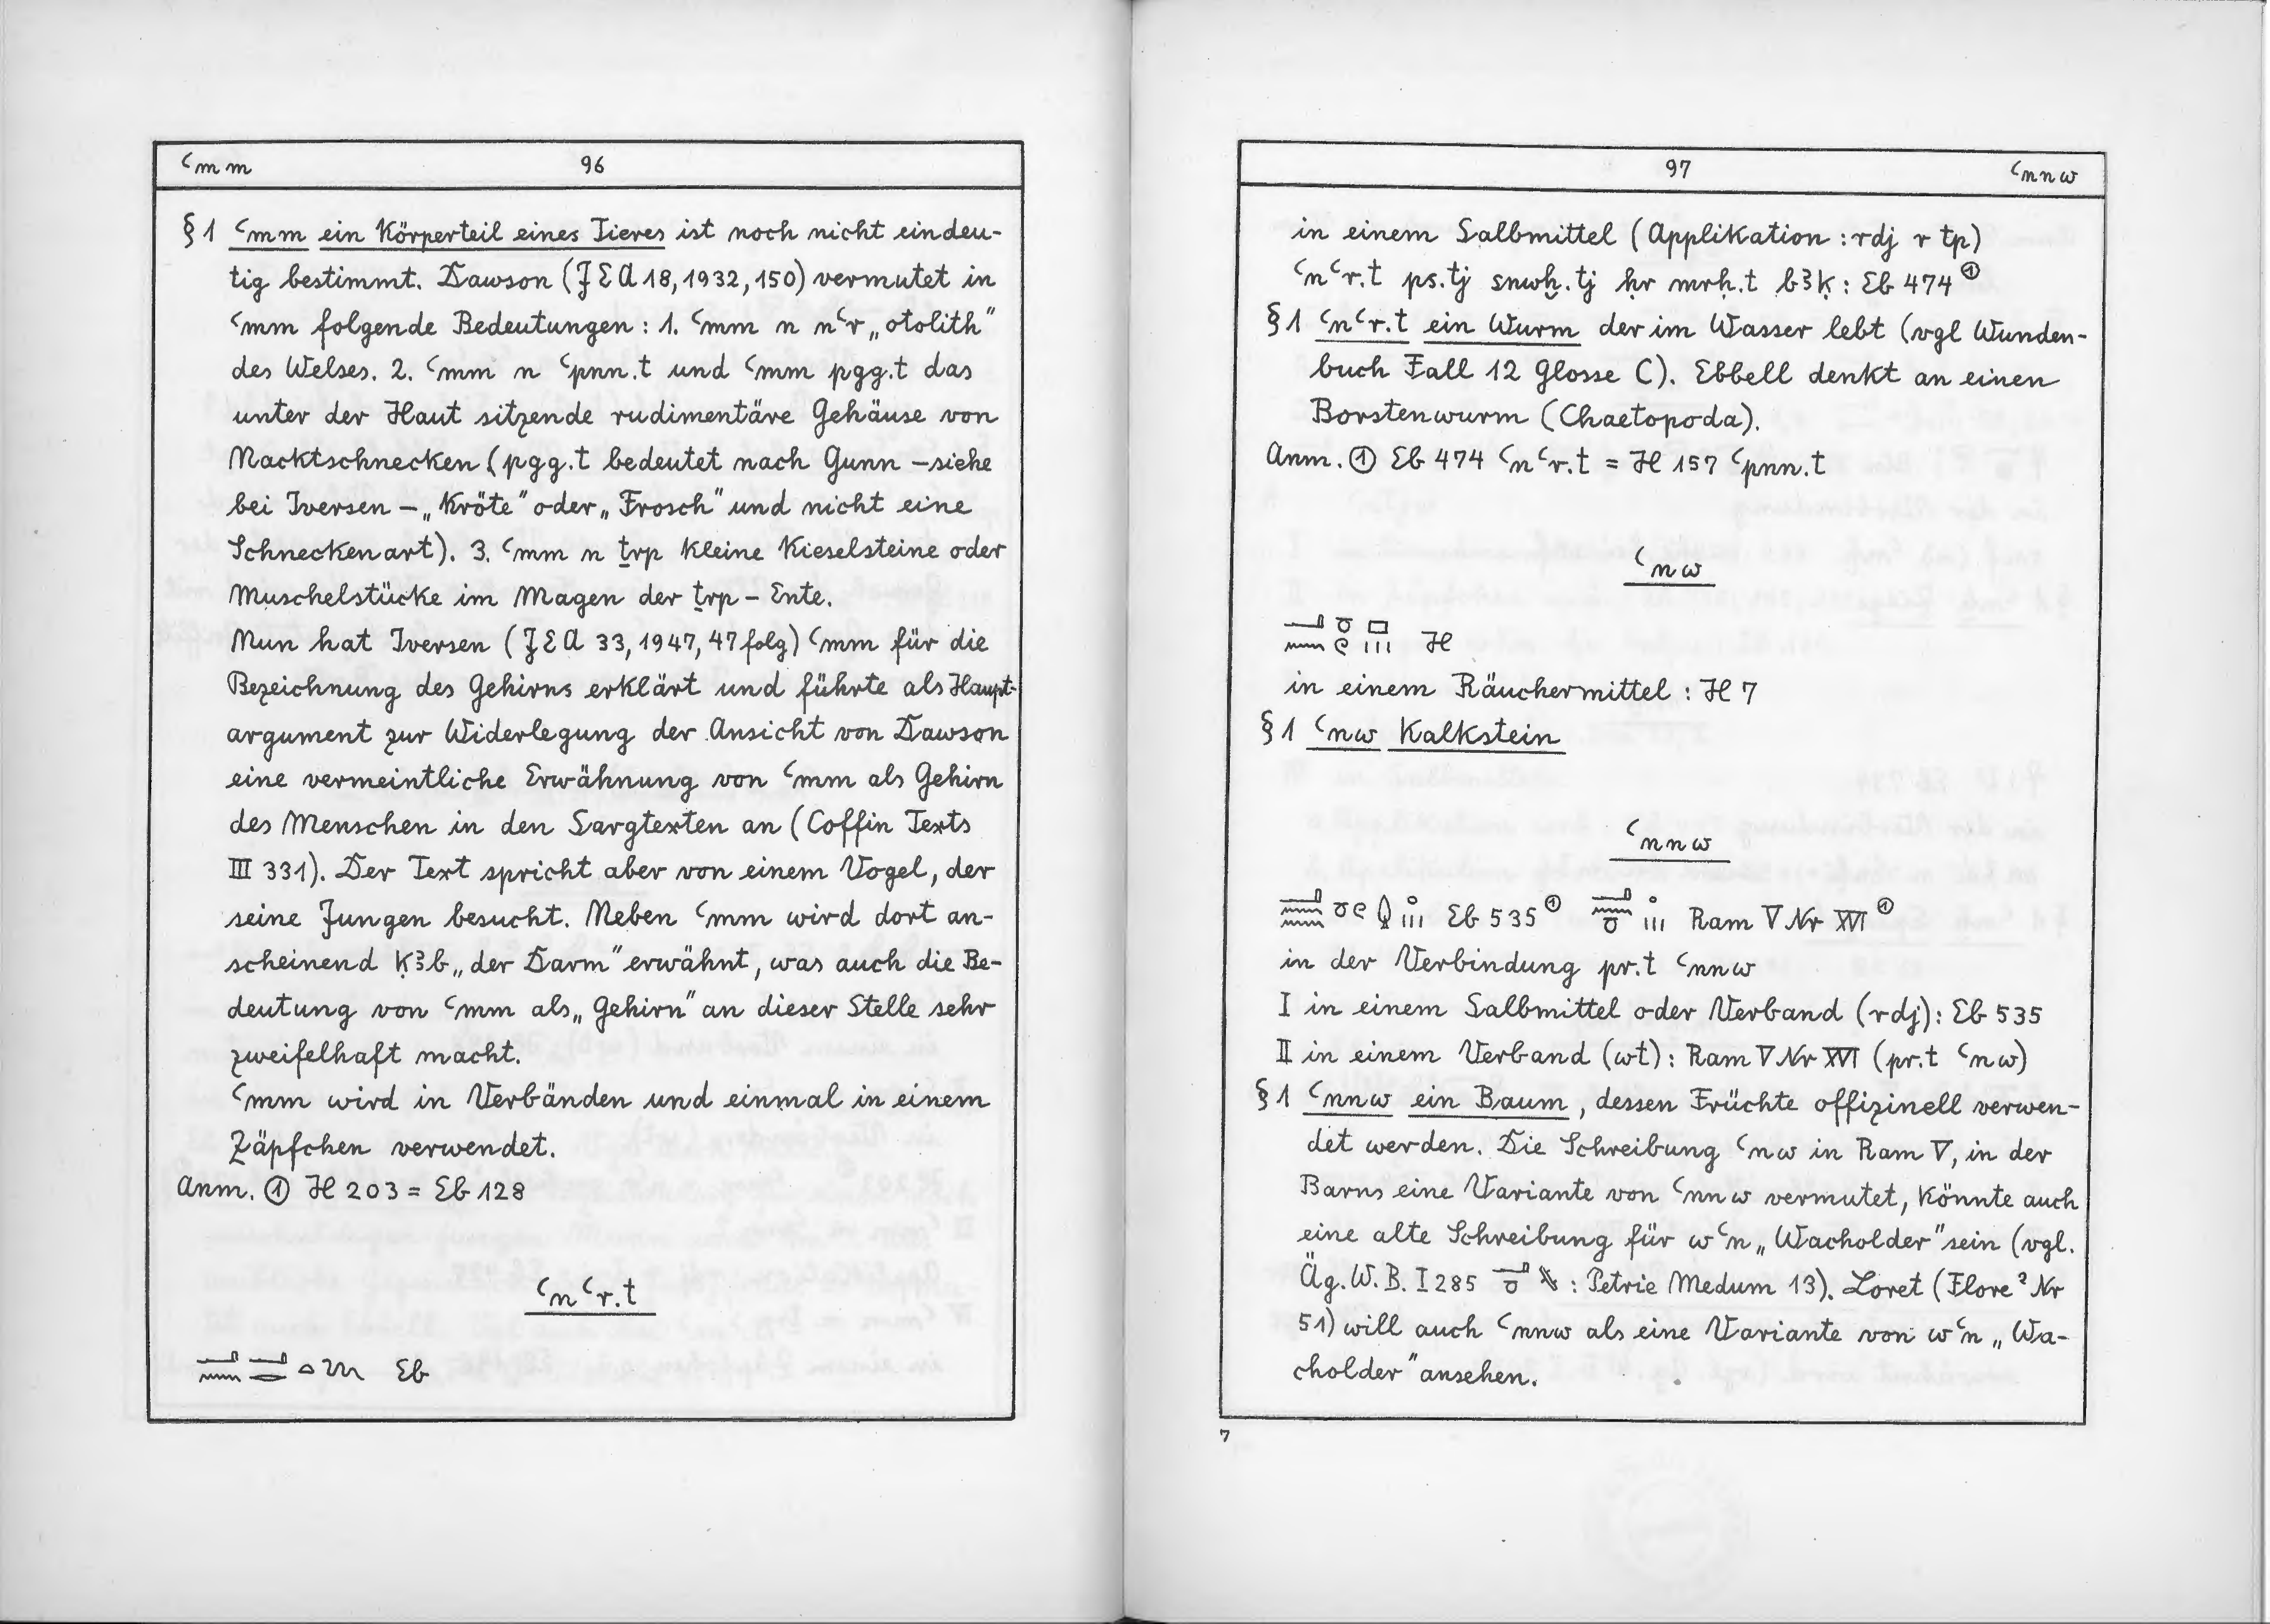 ꜥmm 96
§ 1 ꜥmm ein Körperteil eines Tieres ist noch nicht eindeu-
tig bestimmt. Dawson (JEA 18, 1932, 150) vermutet in
ꜥmm folgende Bedeutungen : 1. ꜥmm n nꜥr „otolith"
des Welses. 2. ꜥmm n ꜥpnn.t und ꜥmm pgg.t das
unter der Haut sitzende rudimentäre Gehäuse von
Nacktschnecken (pgg.t bedeutet nach Gunn – siehe
bei Iversen – „Kröte" oder „Frosch" und nicht eine
Schneckenart). 3. ꜥmm n ṯrp kleine Kieselsteine oder
Muschelstücke im Magen der ṯrp – Ente.
Nun hat Iversen (JEA 33, 1947, 47 folg) ꜥmm für die
Bezeichnung des Gehirns erklärt und führte als Haupt-
argument zur Widerlegung der Ansicht von Dawson
eine vermeintliche Erwähnung von ꜥmm als Gehirn
des Menschen in den Sargtexten an (Coffin Texts
III 331). Der Text spricht aber von einem Vogel, der
seine Jungen besucht. Neben ꜥmm wird dort an-
scheinend ḳꜣb „der Darm" erwähnt, was auch die Be-
deutung von ꜥmm als „Gehirn" an dieser Stelle sehr
zweifelhaft macht.
ꜥmm wird in Verbänden und einmal in einem
Zäpfchen verwendet.
Anm. ① H 203 = Eb 128
ꜥnꜥr.t
Eb
97 ꜥnnw
in einem Salbmittel (Applikation : rdj r tp)
ꜥnꜥr.t ps.tj snwḫ.tj ḥr mrḥ.t bꜣḳ : Eb 474 ①
§ 1 ꜥnꜥr.t ein Wurm der im Wasser lebt (vgl Wunden-
buch Fall 12 Glosse C). Ebbell denkt an einen
Borstenwurm (Chaetopoda).
Anm. ① Eb 474 ꜥnꜥr.t = H 157 ꜥpnn.t
ꜥnw
H
in einem Räuchermittel : H 7
§ 1 ꜥnw Kalkstein
ꜥnnw
Eb 535 ① Ram V Nr XVI ①
in der Verbindung pr.t ꜥnnw
I in einem Salbmittel oder Verband (rdj) : Eb 535
II in einem Verband (wt) : Ram V Nr XVI (pr.t ꜥnw)
§ 1 ꜥnnw ein Baum, dessen Früchte offizinell verwen-
det werden. Die Schreibung ꜥnw in Ram V, in der
Barns eine Variante von ꜥnnw vermutet, könnte auch
eine alte Schreibung für wꜥn „Wacholder" sein (vgl.
Äg. W. B. I 285 : Petrie Medum 13). Loret (Flore² Nr
51) will auch ꜥnnw als eine Variante von wꜥn „Wa-
cholder" ansehen.
7